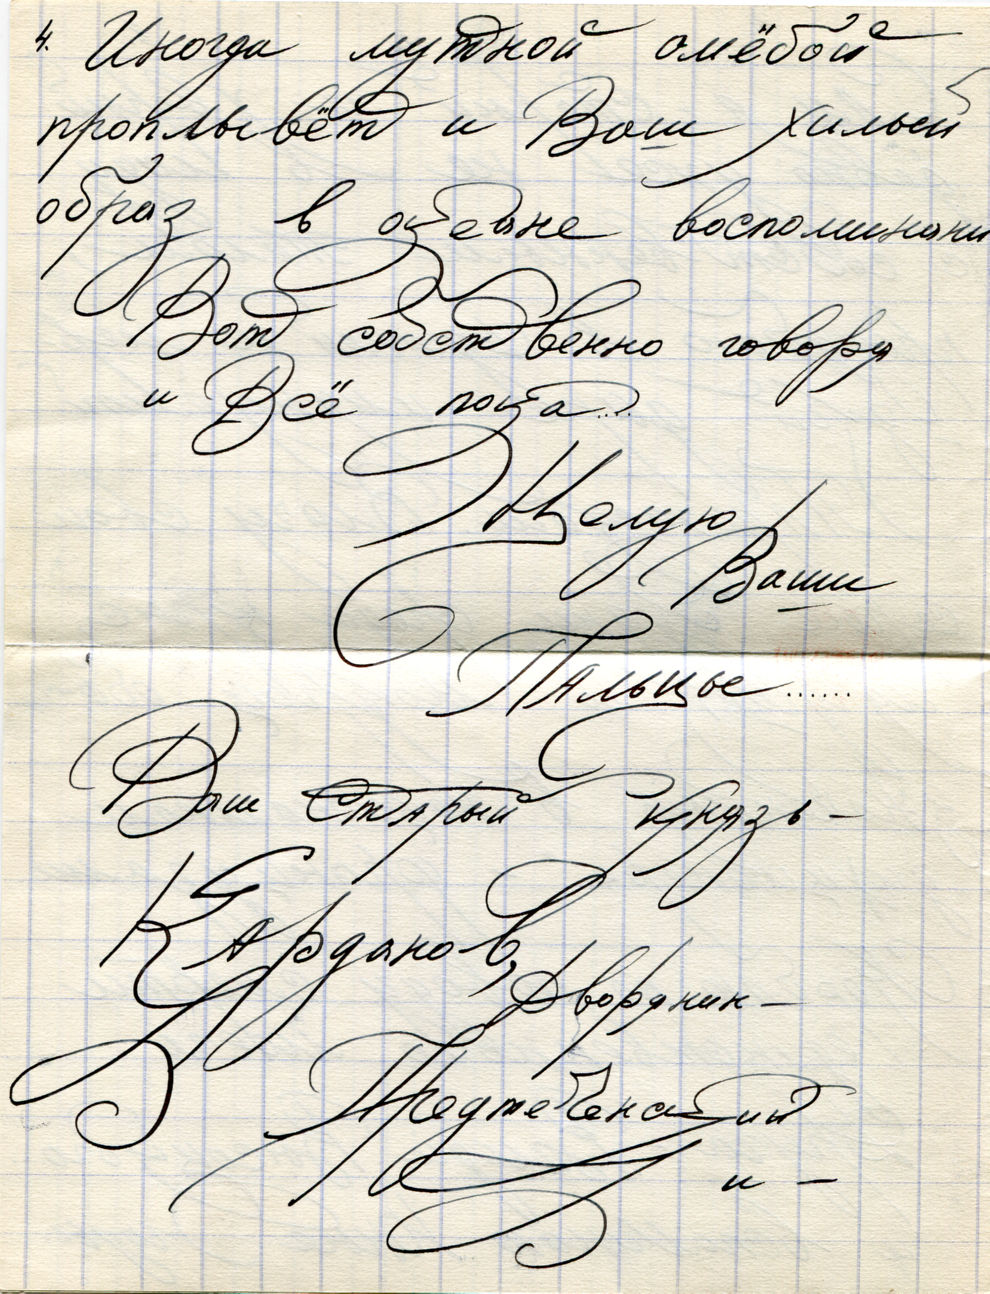 4. Иногда мутной амёбой
проплывёт и Ваш хилый
образ в океане воспоминани
Вот собственно говоря
и Всё пока....
Целую
Ваши
Пальцы......
Ваш Старый Князь-
Карданов,
Дворянин-
Предтеченский
и -